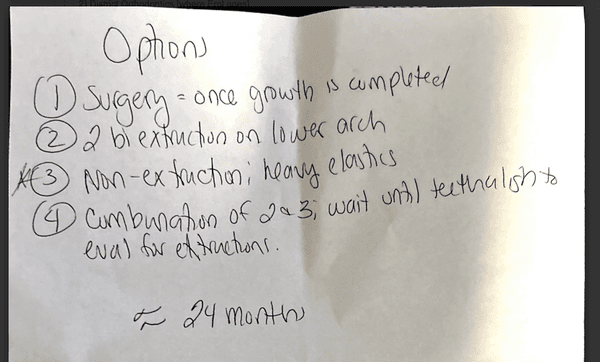 Options
① Surgery = once growth is completed
② 2 bi extraction on lower arch
*③ Non-extraction; heavy elastics
④ Combination of 2 & 3; wait until teeth align to
eval for extractions.
≈ 24 months